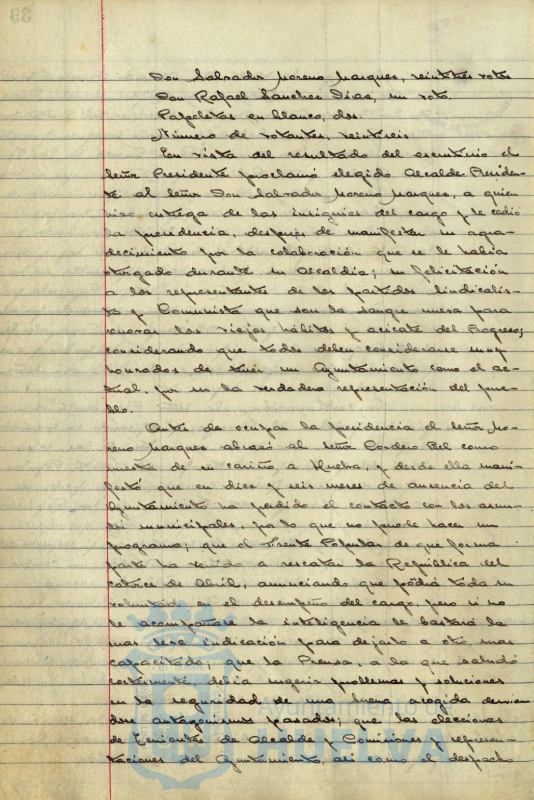 39
Don Salvador Moreno Marquez, veintitres votos
Don Rafael Sanchez Diaz, un voto.
Papeletas en blanco, dos.
Número de votantes, veintiseis
En vista del resultado del escrutinio el
Señor Presidente proclamó elegido Alcalde-Presiden-
te al Señor Don Salvador Moreno Marquez, a quien
hizo entrega de las insignias del cargo y le cedió
la presidencia, después de manifestar su agra-
decimiento por la colaboración que se le había
otorgado durante su Alcaldía; su felicitación
a los representantes de los partidos Sindicalis-
ta y Comunista que son la sangre nueva para
renovar los viejos hábitos y acicate del Progreso,
considerando que todos deben considerarse muy
honrados de tener un Ayuntamiento como el ac-
tual, por ser la verdadera representación del pue-
blo.
Antes de ocupar la presidencia el Señor Mo-
reno Marquez abrazó al Señor Cordero Bel como
muestra de su cariño a Huelva, y desde ella mani-
festó que en diez y seis meses de ausencia del
Ayuntamiento ha perdido el contacto con los asun-
tos municipales, por lo que no puede hacer un
programa; que el Frente Popular de que forma
parte ha venido a rescatar la República del
catorce de Abril, anunciando que pondrá toda su
voluntad en el desempeño del cargo, pero si no
le acompañare la inteligencia le bastará la
mas leve indicación para dejarlo a otro mas
capacitado; que la Prensa, a la que saludó
cortesmente, debía sugerir problemas y soluciones
en la seguridad de una buena acogida
antagonismos pasados; que las elecciones
de Tenientes de Alcalde y Comisiones y represen-
taciones del Ayuntamiento, asi como el despacho
Ayuntamiento
HUELVA